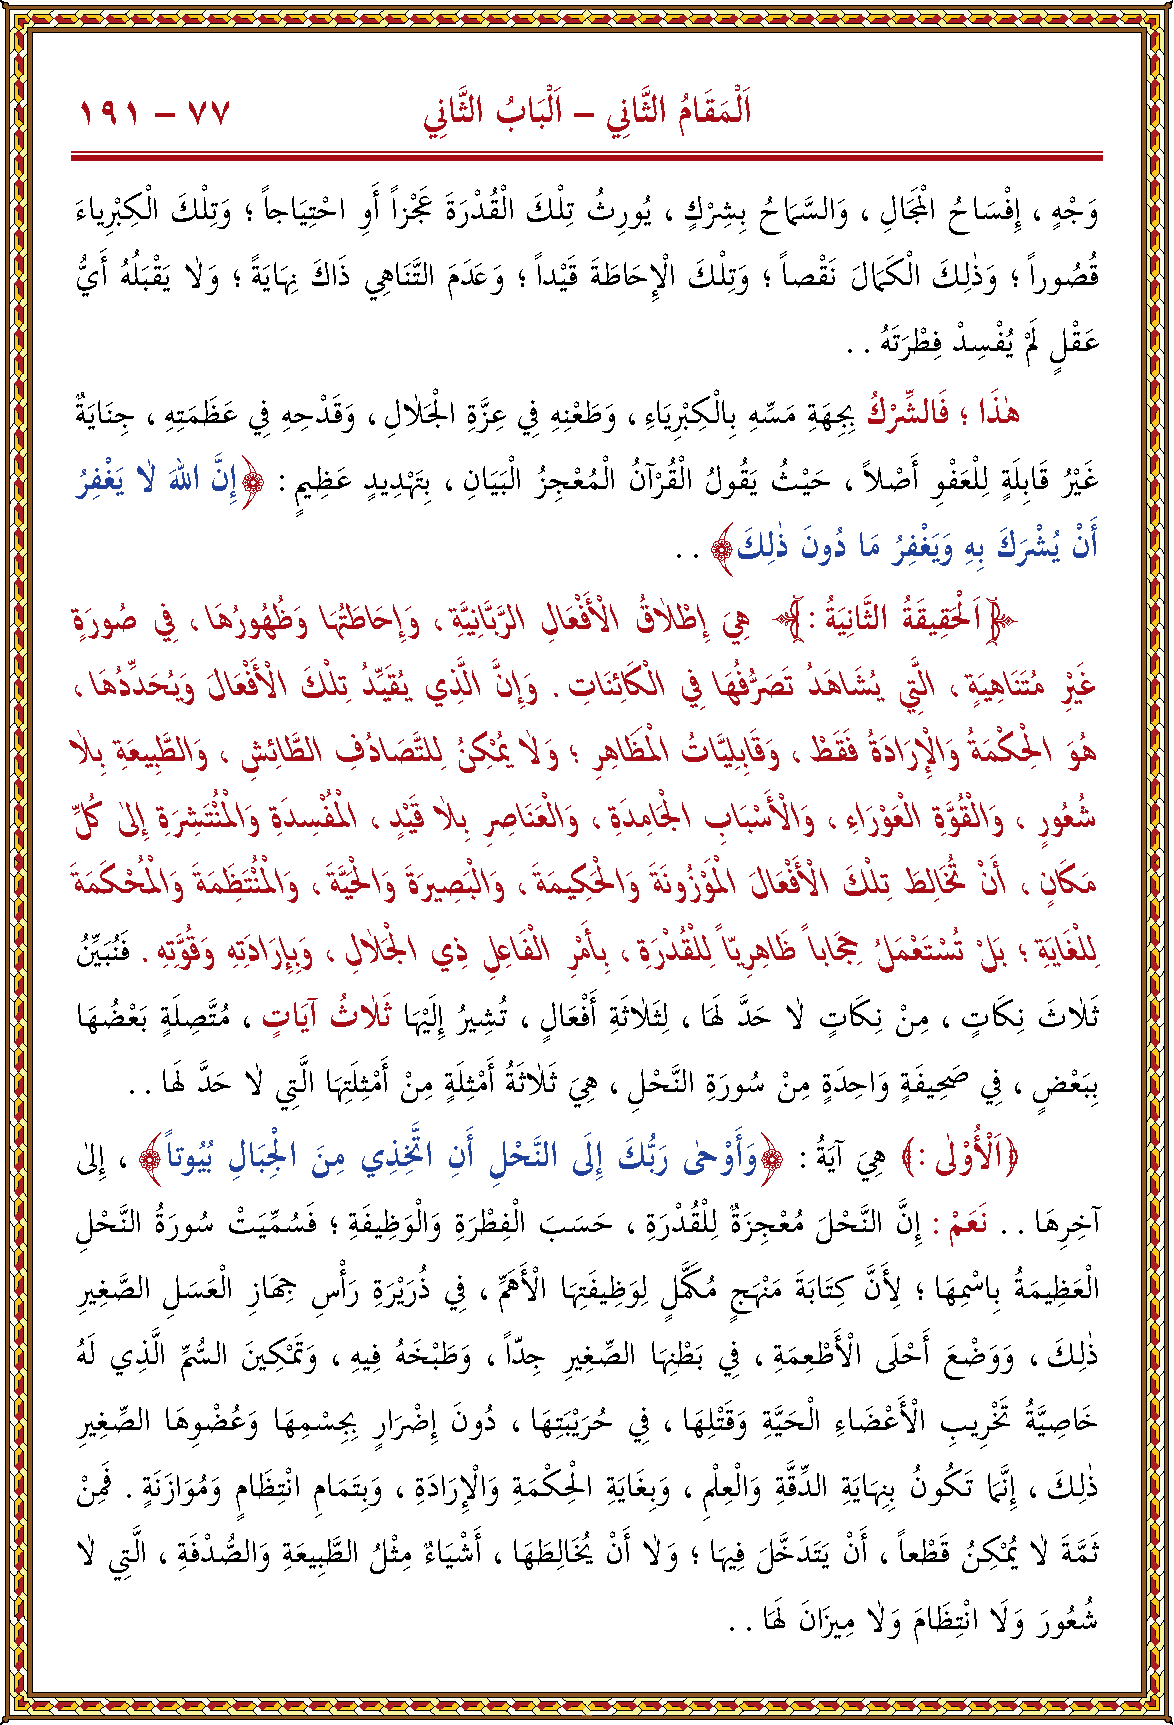 اَلْمَقَامُ الثَّانِي – اَلْبَابُ الثَّانِي ٧٧ – ١٩١
وَجْهٍ ، إِفْسَاحُ الْمَجَالِ ، وَالسَّمَاحُ بِشِرْكٍ ، يُورِثُ تِلْكَ الْقُدْرَةَ عَجْزاً أَوِ احْتِيَاجاً ؛ وَتِلْكَ الْكِبْرِيَاءَ
قُصُوراً ؛ وَذٰلِكَ الْكَمَالَ نَقْصاً ؛ وَتِلْكَ الْإِحَاطَةَ قَيْداً ؛ وَعَدَمَ التَّنَاهِي ذَاكَ نِهَايَةً ؛ وَلَا يَقْبَلُهُ أَيُّ
عَقْلٍ لَمْ يُفْسِدْ فِطْرَتَهُ . .
هٰذَا ؛ فَالشِّرْكُ بِجِهَةِ مَسِّهِ بِالْكِبْرِيَاءِ ، وَطَعْنِهِ فِي عِزَّةِ الْجَلَالِ ، وَقَدْحِهِ فِي عَظَمَتِهِ ، جِنَايَةٌ
غَيْرُ قَابِلَةٍ لِلْعَفْوِ أَصْلاً ، حَيْثُ يَقُولُ الْقُرْآنُ الْمُعْجِزُ الْبَيَانِ ، بِتَهْدِيدٍ عَظِيمٍ : ﴿إِنَّ اللهَ لَا يَغْفِرُ
أَنْ يُشْرَكَ بِهِ وَيَغْفِرُ مَا دُونَ ذٰلِكَ﴾ . .
﴿اَلْحَقِيقَةُ الثَّانِيَةُ :﴾ هِيَ إِطْلَاقُ الْأَفْعَالِ الرَّبَّانِيَّةِ ، وَإِحَاطَتُهَا وَظُهُورُهَا ، فِي صُورَةٍ
غَيْرِ مُتَنَاهِيَةٍ ، الَّتِي يُشَاهَدُ تَصَرُّفُهَا فِي الْكَائِنَاتِ . وَإِنَّ الَّذِي يُقَيِّدُ تِلْكَ الْأَفْعَالَ وَيُحَدِّدُهَا ،
هُوَ الْحِكْمَةُ وَالْإِرَادَةُ فَقَطْ ، وَقَابِلِيَّاتُ الْمَظَاهِرِ ؛ وَلَا يُمْكِنُ لِلتَّصَادُفِ الطَّائِشِ ، وَالطَّبِيعَةِ بِلَا
شُعُورٍ ، وَالْقُوَّةِ الْعَوْرَاءِ ، وَالْأَسْبَابِ الْجَامِدَةِ ، وَالْعَنَاصِرِ بِلَا قَيْدٍ ، الْمُفْسِدَةِ وَالْمُنْتَشِرَةِ إِلٰى كُلِّ
مَكَانٍ ، أَنْ تُخَالِطَ تِلْكَ الْأَفْعَالَ الْمَوْزُونَةَ وَالْحَكِيمَةَ ، وَالْبَصِيرَةَ وَالْحَيَّةَ ، وَالْمُنْتَظَمَةَ وَالْمُحْكَمَةَ
لِلْغَايَةِ ؛ بَلْ تُسْتَعْمَلُ حِجَاباً ظَاهِرِيّاً لِلْقُدْرَةِ ، بِأَمْرِ الْفَاعِلِ ذِي الْجَلَالِ ، وَبِإِرَادَتِهِ وَقُوَّتِهِ . فَنُبَيِّنُ
ثَلَاثَ نِكَاتٍ ، مِنْ نِكَاتٍ لَا حَدَّ لَهَا ، لِثَلَاثَةِ أَفْعَالٍ ، تُشِيرُ إِلَيْهَا ثَلَاثُ آيَاتٍ ، مُتَّصِلَةٍ بَعْضُهَا
بِبَعْضٍ ، فِي صَحِيفَةٍ وَاحِدَةٍ مِنْ سُورَةِ النَّحْلِ ، هِيَ ثَلَاثَةُ أَمْثِلَةٍ مِنْ أَمْثِلَتِهَا الَّتِي لَا حَدَّ لَهَا . .
﴿اَلْأُوْلٰى :﴾ هِيَ آيَةُ : ﴿وَأَوْحٰى رَبُّكَ إِلَى النَّحْلِ أَنِ اتَّخِذِي مِنَ الْجِبَالِ بُيُوتاً﴾ ، إِلٰى
آخِرِهَا . . نَعَمْ : إِنَّ النَّحْلَ مُعْجِزَةٌ لِلْقُدْرَةِ ، حَسَبَ الْفِطْرَةِ وَالْوَظِيفَةِ ؛ فَسُمِّيَتْ سُورَةُ النَّحْلِ
الْعَظِيمَةُ بِاسْمِهَا ؛ لِأَنَّ كِتَابَةَ مَنْهَجٍ مُكَمَّلٍ لِوَظِيفَتِهَا الْأَهَمِّ ، فِي ذُرَيْرَةِ رَأْسِ جِهَازِ الْعَسَلِ الصَّغِيرِ
ذٰلِكَ ، وَوَضْعَ أَحْلَى الْأَطْعِمَةِ ، فِي بَطْنِهَا الصِّغِيرِ جِدّاً ، وَطَبْخَهُ فِيهِ ، وَتَمْكِينَ السُّمِّ الَّذِي لَهُ
خَاصِيَّةُ تَخْرِيبِ الْأَعْضَاءِ الْحَيَّةِ وَقَتْلِهَا ، فِي حُرَيْبَتِهَا ، دُونَ إِضْرَارٍ بِجِسْمِهَا وَعُضْوِهَا الصِّغِيرِ
ذٰلِكَ ، إِنَّمَا تَكُونُ بِنِهَايَةِ الدِّقَّةِ وَالْعِلْمِ ، وَبِغَايَةِ الْحِكْمَةِ وَالْإِرَادَةِ ، وَبِتَمَامِ انْتِظَامٍ وَمُوَازَنَةٍ . فَمِنْ
ثَمَّةَ لَا يُمْكِنُ قَطْعاً ، أَنْ يَتَدَخَّلَ فِيهَا ؛ وَلَا أَنْ يُخَالِطَهَا ، أَشْيَاءُ مِثْلُ الطَّبِيعَةِ وَالصُّدْفَةِ ، الَّتِي لَا
شُعُورَ وَلَا انْتِظَامَ وَلَا مِيزَانَ لَهَا . .